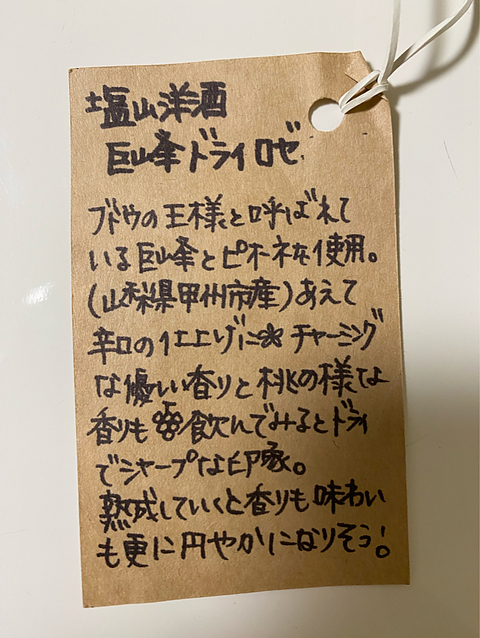 塩山洋酒
巨峰ドライロゼ
ブドウの王様と呼ばれて
いる巨峰とピオーネを使用。
(山梨県甲州市産)あえて
辛口の仕上げに チャーミング
な優しい香りと桃の様な
香りも 飲んでみるとドライ
でシャープな印象。
熟成していくと香りも味わい
も更に円やかになりそう!